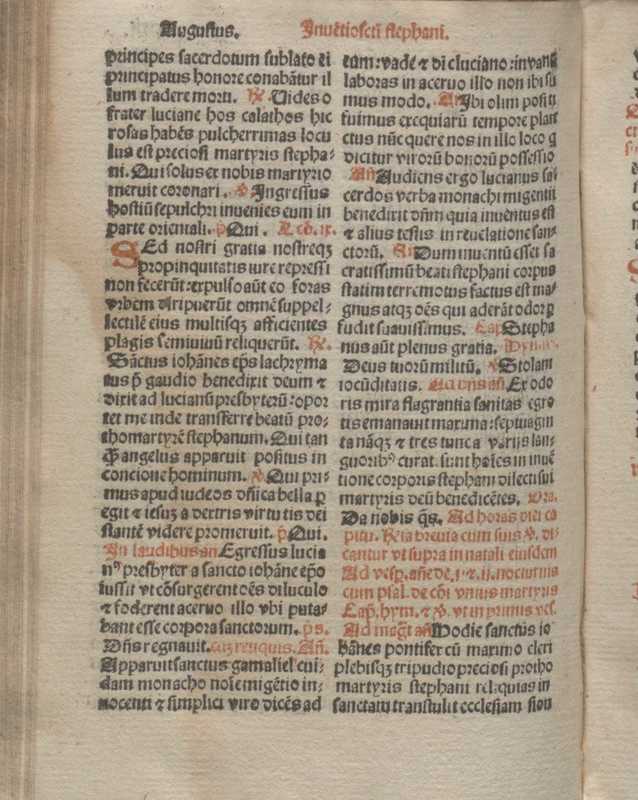 Augustus.
Inuētio sctī stephani.
principes sacerdotum sublato ei
principatus honore conabātur il
lum tradere morti. ℟ Uides o
frater luciane hos calathos hic
rosas habēs pulcherrimas locu
lus est preciosi martyris stepha-
ni. Qui solus et nobis martyrio
meruit coronari. ℣ Ingressus
hostiū sepulchri inuenies eum in
parte orientali. p̄ Qui.
SEd nostri gratia nostreqꝫ
propinquitatis iure repressi
non fecerūt: expulso aūt eo foras
vrbem diripuerūt omnē suppel-
lectilē eius multisqꝫ afficientes
plagis semiuiuū reliquerūt. ℟.
Sāctus iohānes ep̄s lachryma
tus p̄ gaudio benedixit deum ⁊
dixit ad lucianū presbyterū: opor
tet me inde transferre beatū pro-
thomartyrē stephanum. Qui tan
q̄ꝫ angelus apparuit positus in
concione hominum. ℣ Qui pri-
mus apud iudeos dn̄ica bella ꝑ
egit ⁊ iesuꝫ a dextris virtutis dei
stantē videre promeruit. p̄ Qui.
In laudibus an̄ Egressus lucia
nꝰ presbyter a sancto iohāne ep̄o
iussit vt cōsurgerent oēs diluculo
⁊ foderent aceruo illo vbi puta-
bant esse corpora sanctorum. p̄s.
Dn̄s regnauit. cuꝫ reliquis. An̄.
Apparuit sanctus gamaliel cui-
dam monacho noīe migētio in-
nocenti ⁊ simplici viro dicēs ad
eum: vade ⁊ dic luciano: in vanū
laboras in aceruo illo non ibi su
mus modo. An̄ Ibi olim positi
fuimus exequiarū tempore plan
ctus nūc quere nos in illo loco q
dicitur virorū bonorū possessio
An̄ Audiens ergo lucianus sa-
cerdos verba monachi migentii
benedixit dn̄m quia inuentus est
⁊ alius testis in reuelatione san-
ctorū. An̄ Dum inuentū esset sa
cratissimū beati stephani corpus
statim terremotus factus est ma-
gnus atqꝫ oēs qui aderāt odor ꝑ
fudit suauissimus. Cap̄ Stepha
nus aūt plenus gratia.
Deus tuorū militū. ℣ Stolam
iocūditatis. Ex odo
ris mira flagrantia sanitas egro
tis emanauit maxima: septuagin
ta nāqꝫ ⁊ tres tunc a varijs lan-
guoribꝰ curati sunt hoīes in inuē
tione corporis stephani dilecti sui
martyris deū benedicētes. Ora.
Da nobis q̄s. Ad horas diei ca
pitu. ℟ia breuia cum suis ℣. di-
cantur vt supra in natali eiusdem
Ad vesp̄. an̄e de .j. ⁊ .ij. nocturnis
cum psal. de cōi vnius martyris
Cap̄. hym. ⁊ ℣. vt in primis ves.
Ad maḡt an̄ Hodie sanctus io
hānes pontifex cū maximo cleri
plebisqꝫ tripudio preciosi protho
martyris stephani reliquias in
sanctam transtulit ecclesiam sion